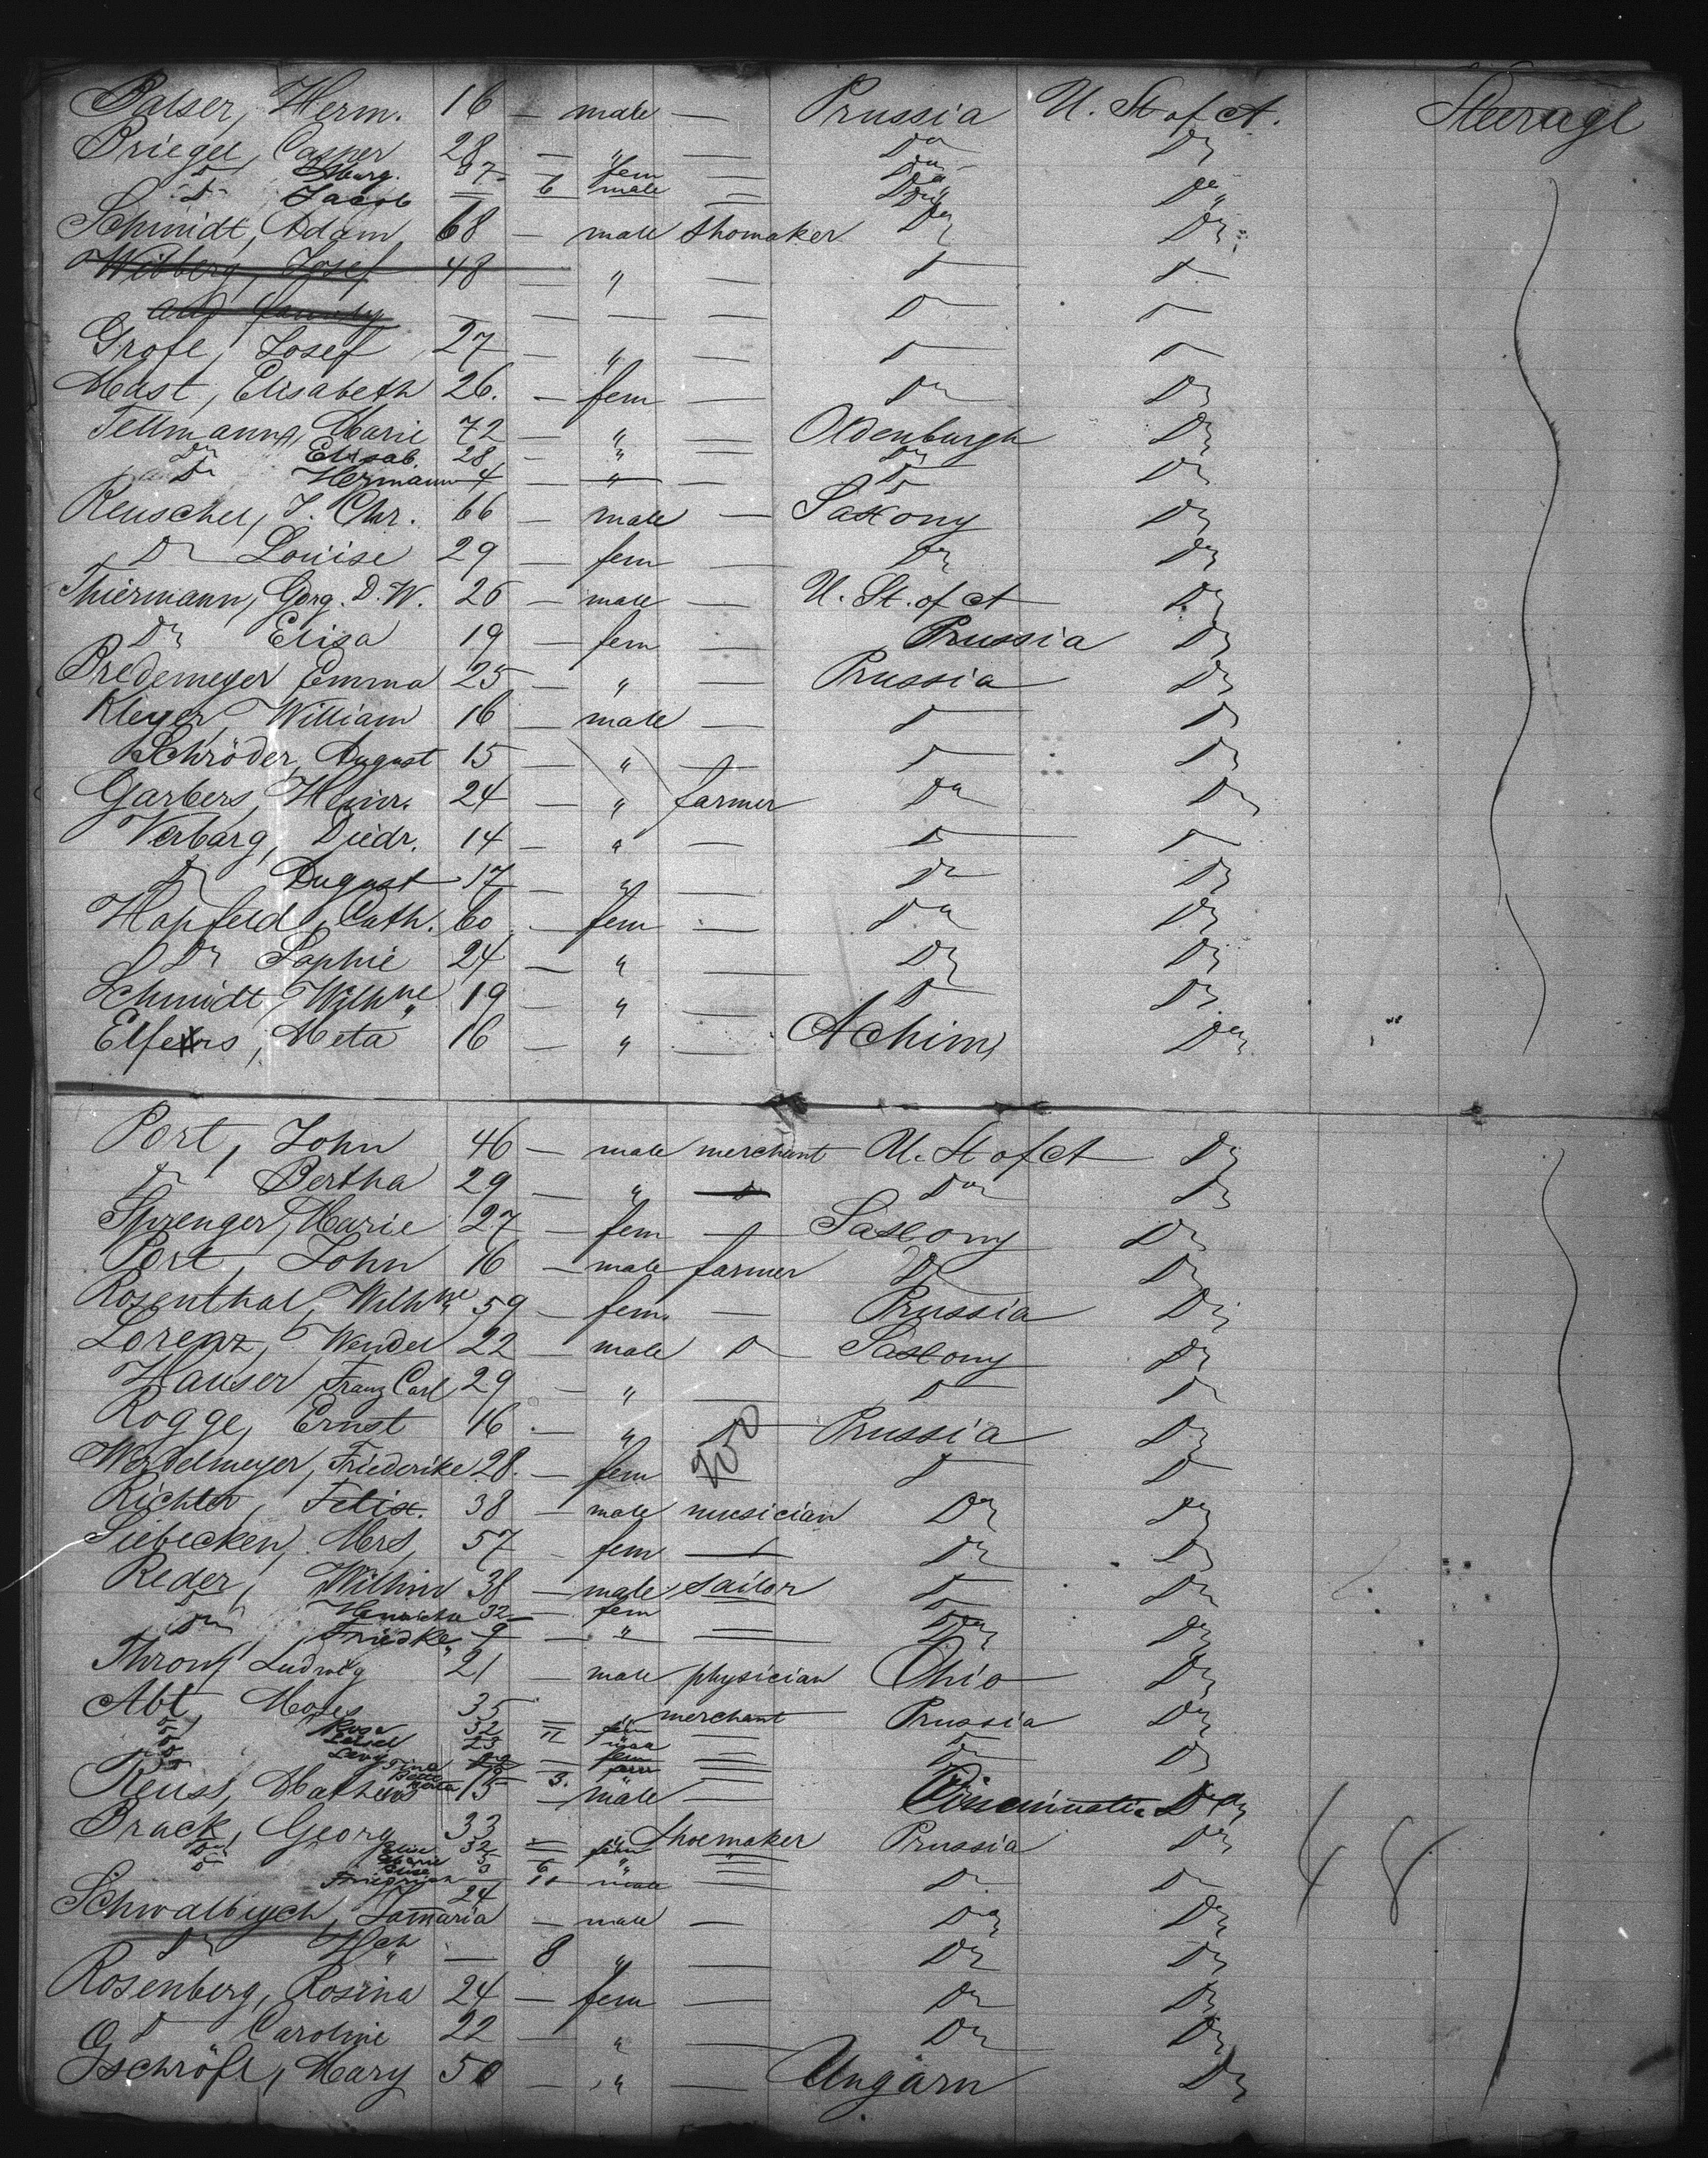 Balser, Herm. 16 — male — Prussia U. St of A. Steerage
Briegel, Casper 28 — " — Do Do
Do Marg. 37 — fem — Do
Do Jacob — 6 male — Do Do
Schmidt, Adam 68 — male shomaker Do Do
Wibberg, Josef 48 — " — Do Do
and family — — — — Do Do
Grofe, Josef 27 — " — Do Do
Mast, Elisabeth 26. — fem — Do Do
Tellmann, Marie 72 — " — Oldenburgh Do
Do Elisab. 28 — " — Do
Do Hermann 4 — " — Do Do
Reuschel, J. Chr. 66 — male — Saxony Do
Do Louise 29 — fem — Do Do
Thiermann, Georg. D. W. 26 — male — U. St. of A Do
Do Elisa 19 — fem — Prussia Do
Bredemeyer Emma 25 — " — Prussia Do
Kleyer, William 16 — male — Do Do
Schröder, August 15 — " — Do Do
Garbers, Heinr. 24 — " farmer Do Do
Verbarg, Diedr. 14 — " — Do Do
Do August 17 — " — Do Do
Hopfeld, Cath. 60 — fem — Do Do
Do Sophie 24 — " — Do Do
Schmidt, Wilhne 19 — " — Do Do
Elfers, Meta 16 — " — Achim Do
Port, John 46 — male merchant U. St of A Do
Do Bertha 29 — " — Do Do
Sprenger, Marie 27 — fem — Saxony Do
Port, John 16 — male farmer Do Do
Rosenthal, Wilhne 59 — fem. — Prussia Do
Lorenz, Wendel 22 — male Do Saxony Do
Hauser, Franz Carl 29 — " — Do Do
Rogge, Ernst 16 — " Do Prussia Do
Werdelmeyer, Friederike 28. — fem — Do Do
Richter, Felix. 38 — male musician Do Do
Siebecken, Mrs, 57 fem — Do Do
Reder, Wilhim 38 — male sailor Do Do
Do 32 — fem — Do
Do Friedke 9 — " — Do Do
Ludwig 21 — male physician Ohio Do
Abt, Moses 35 " merchant Prussia Do
Do Rosa 32 — fem —
Do 23
Do Levy Do Do
Reuss, Mathew 15 — male — Cincinnati Do
Brack, Georg 33 — " shoemaker Prussia Do
Do Elise 32 — fem —
Do Marie 6 "
Friedrich — 11 male — Do Do
Schwalbych, Zamaria 24 — male — Do Do
Do Hch — 8 " — Do Do
48
Rosenberg, Rosina 24 — fem — Do Do
Do Caroline 22 — " — Do Do
Gschröfl, Mary 50 — " — Ungarn Do